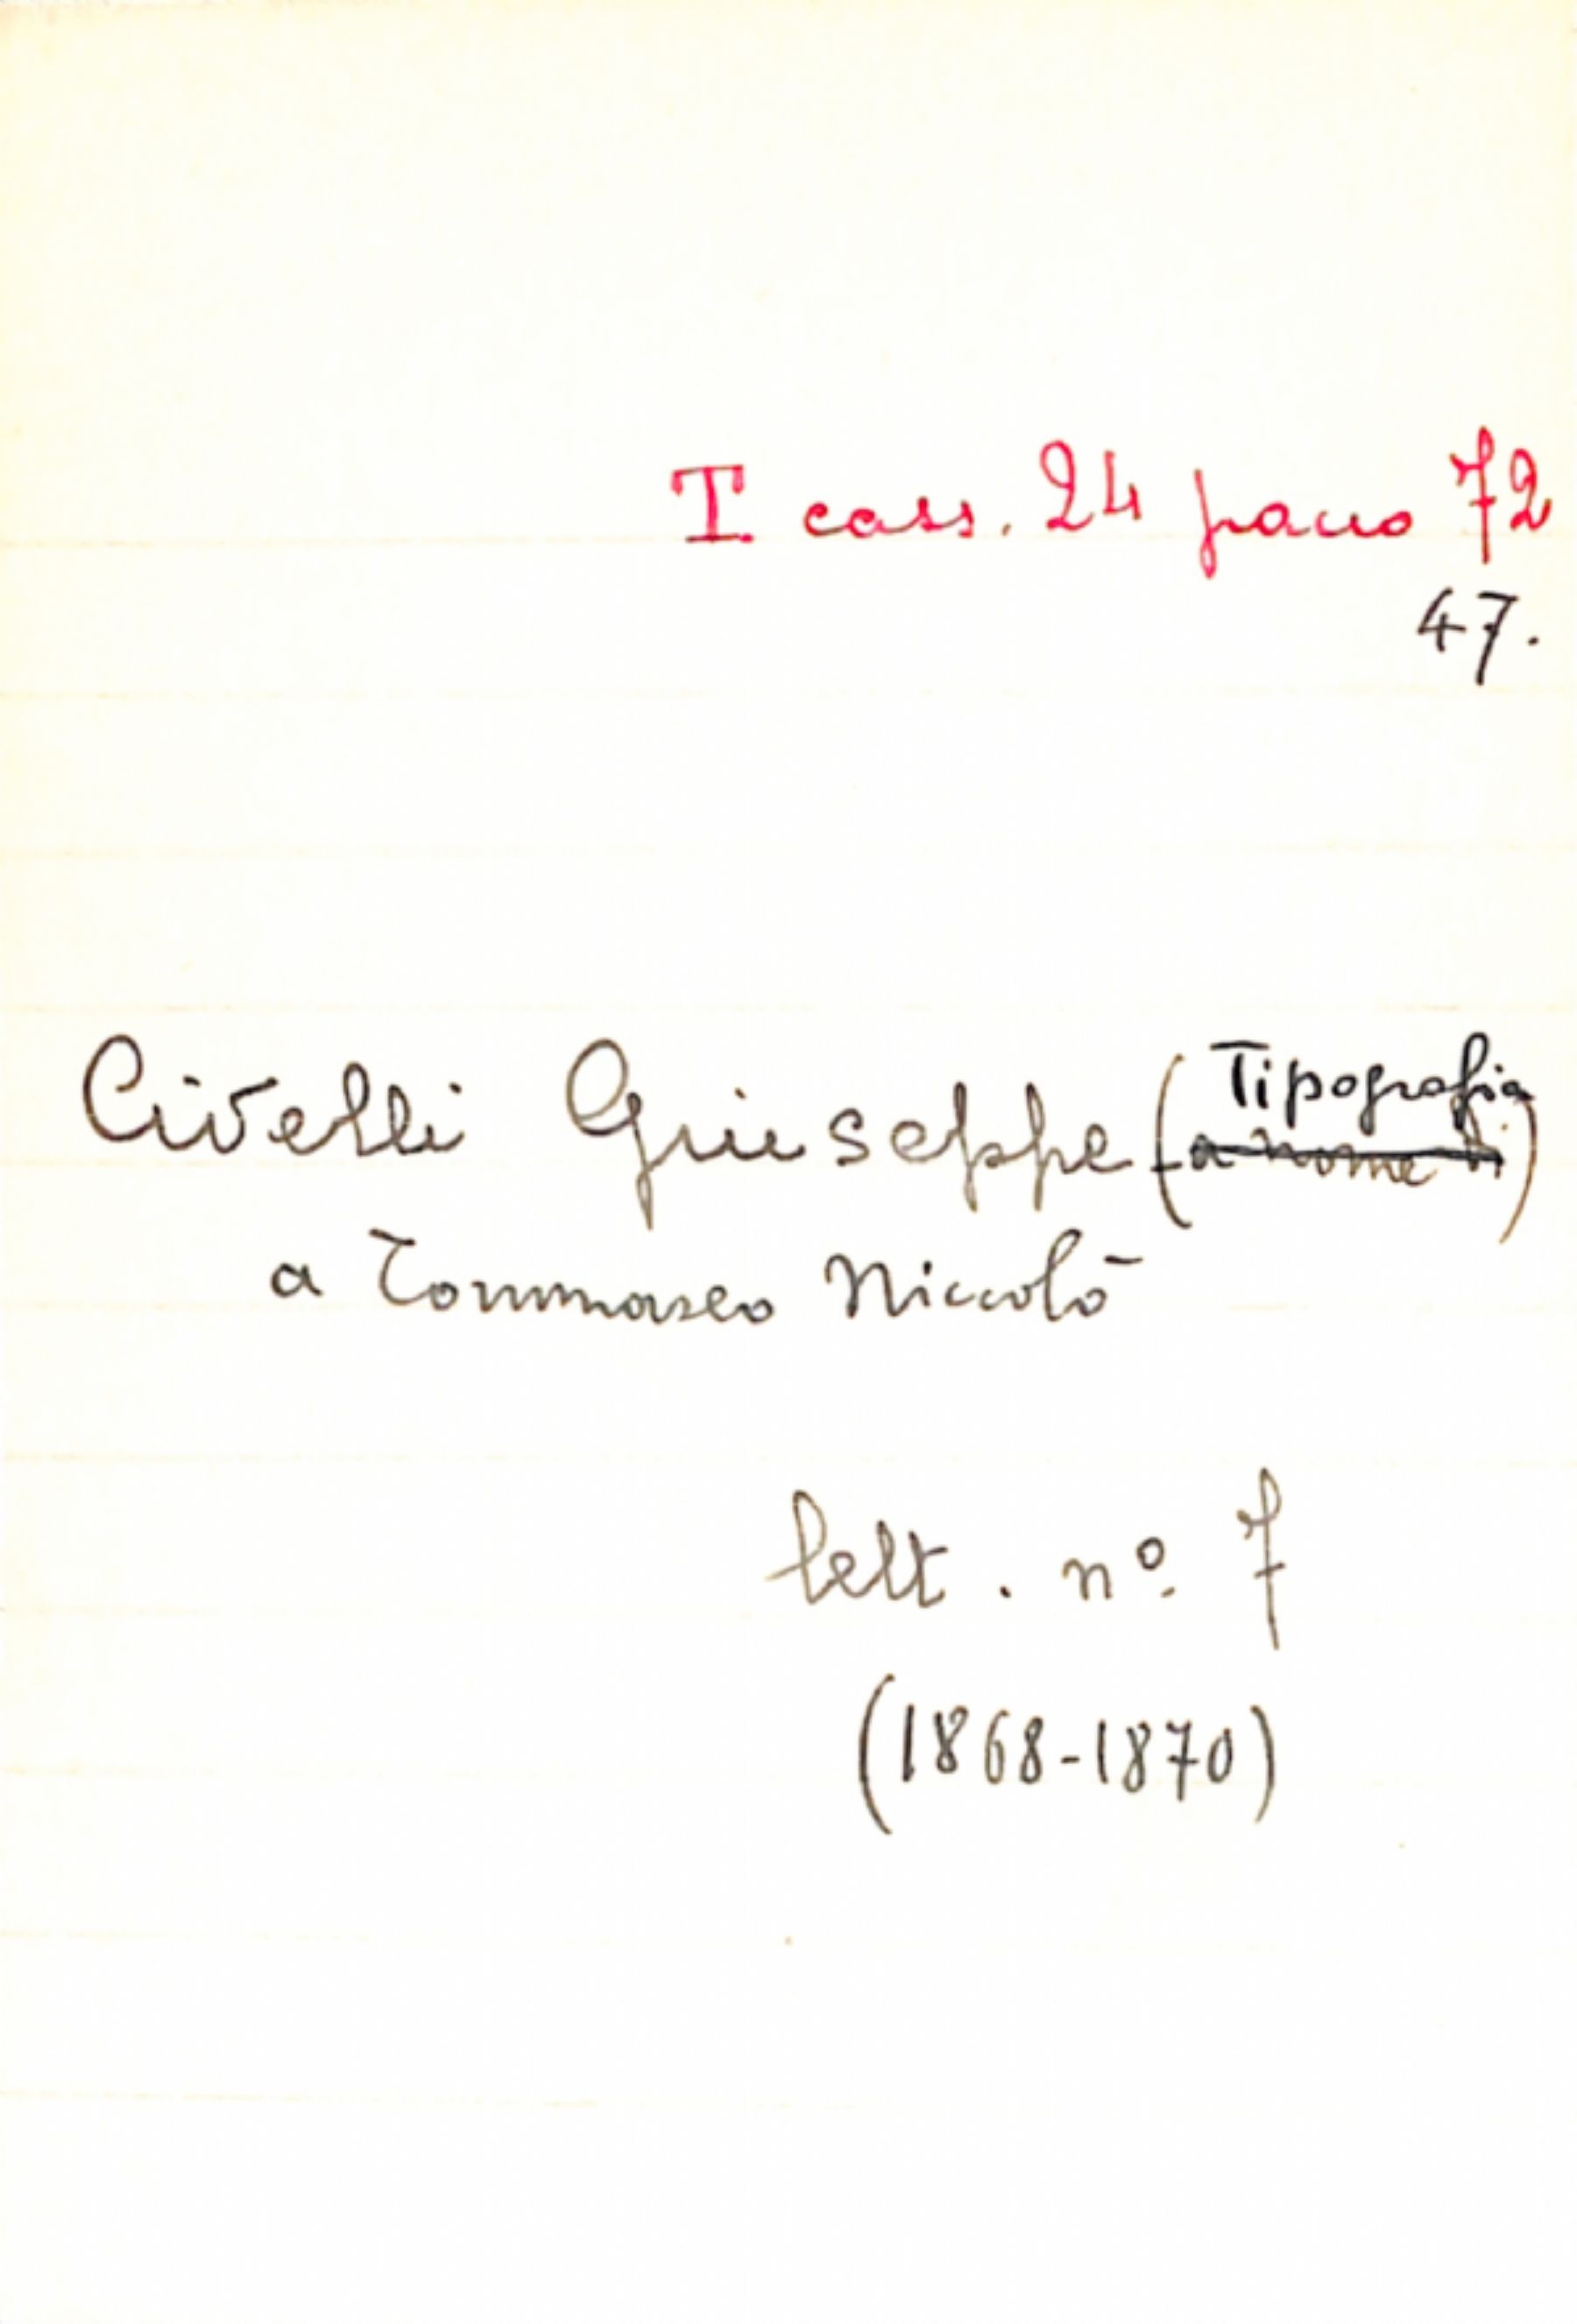 T. cass. 24 pacco 72
47.
Civelli Giuseppe (Tipografia
a nome di)
a Tommaseo Niccolò
lett. nº 7
(1868-1870)